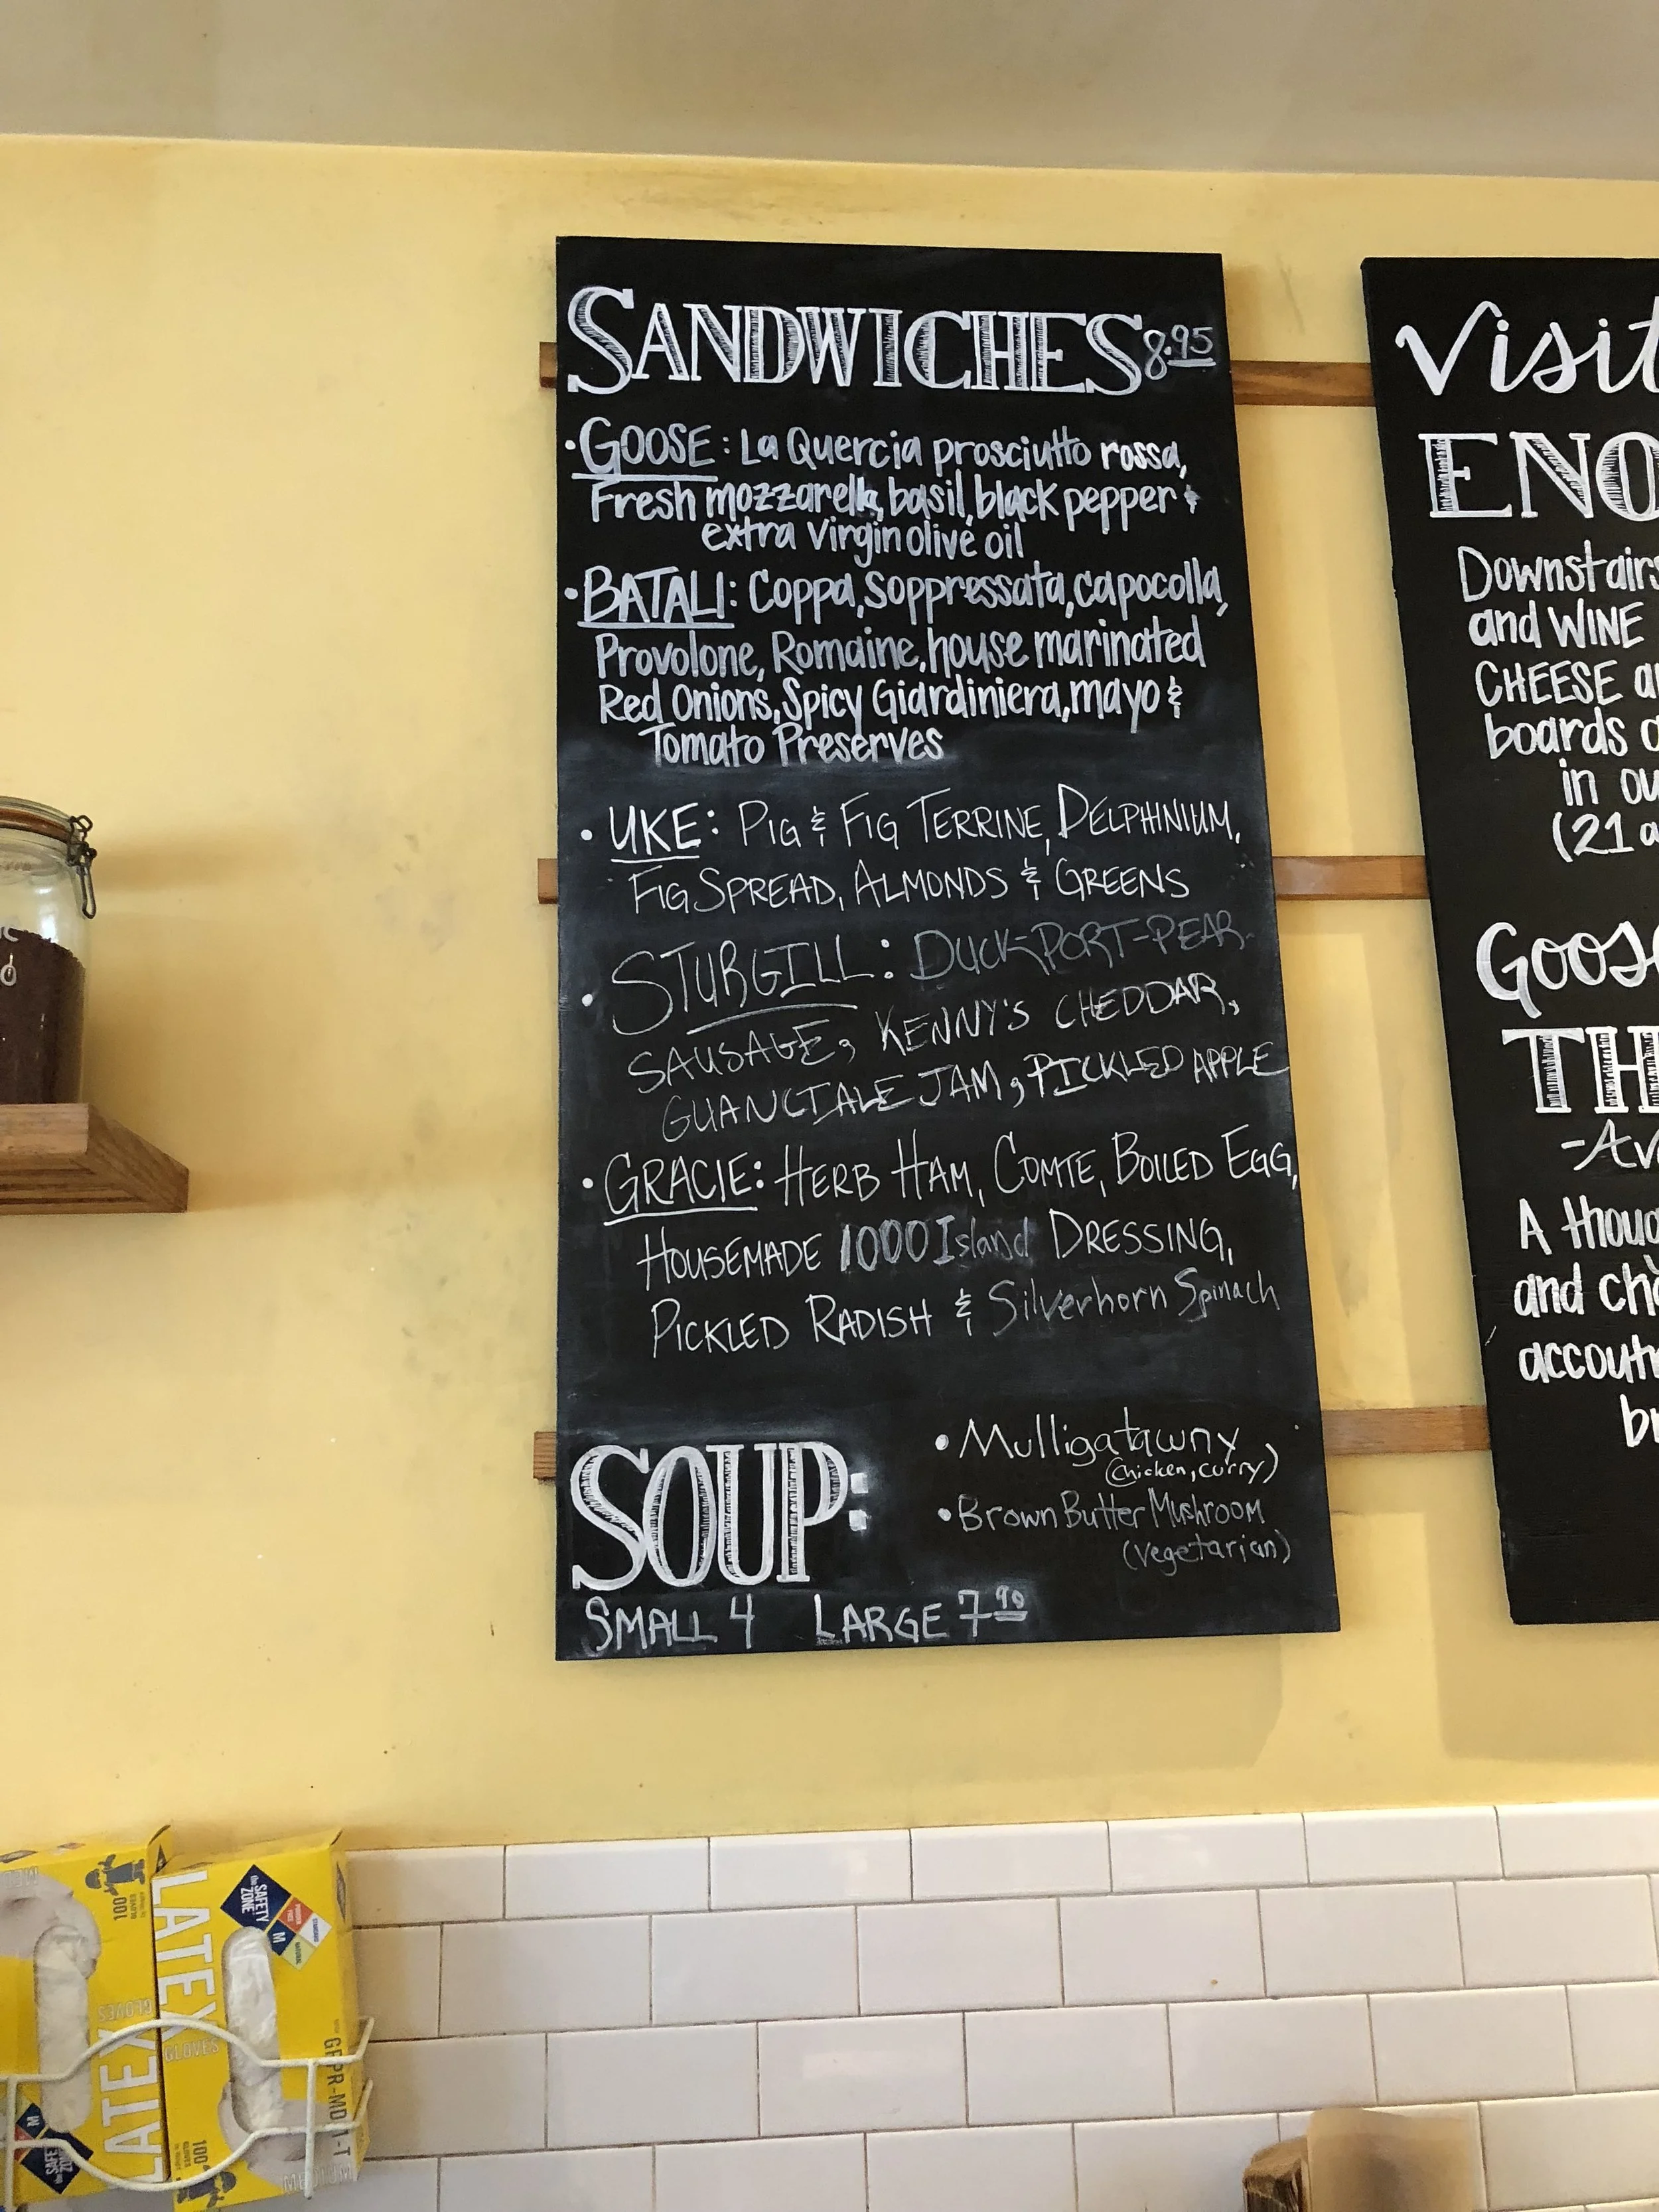 SANDWICHES 8.95
• GOOSE: La Quercia prosciutto rossa,
Fresh mozzarella, basil, black pepper &
extra virgin olive oil
• BATALI: Coppa, Soppressata, capocolla,
Provolone, Romaine, house marinated
Red Onions, Spicy Giardiniera, mayo &
Tomato Preserves
• UKE: PIG & FIG TERRINE, DELPHINIUM,
FIG SPREAD, ALMONDS & GREENS
• STURGILL: DUCK-PORT-PEAR-
SAUSAGE, KENNY'S CHEDDAR,
GUANCIALE JAM, PICKLED APPLE
• GRACIE: HERB HAM, COMTE, BOILED EGG,
HOUSEMADE 1000 Island DRESSING,
PICKLED RADISH & Silverhorn Spinach
SOUP:
• Mulligatawny
(chicken, curry)
• Brown Butter Mushroom
(vegetarian)
SMALL 4 LARGE 7.90
Visit
ENO
Downstairs
and WINE
CHEESE a
boards
in ou
(21 a
Goose
TH
A thou
and ch
accout
br
LATEX
GLOVES
100
GLOVES
the SAFETY ZONE
M
LATEX
GLOVES
100